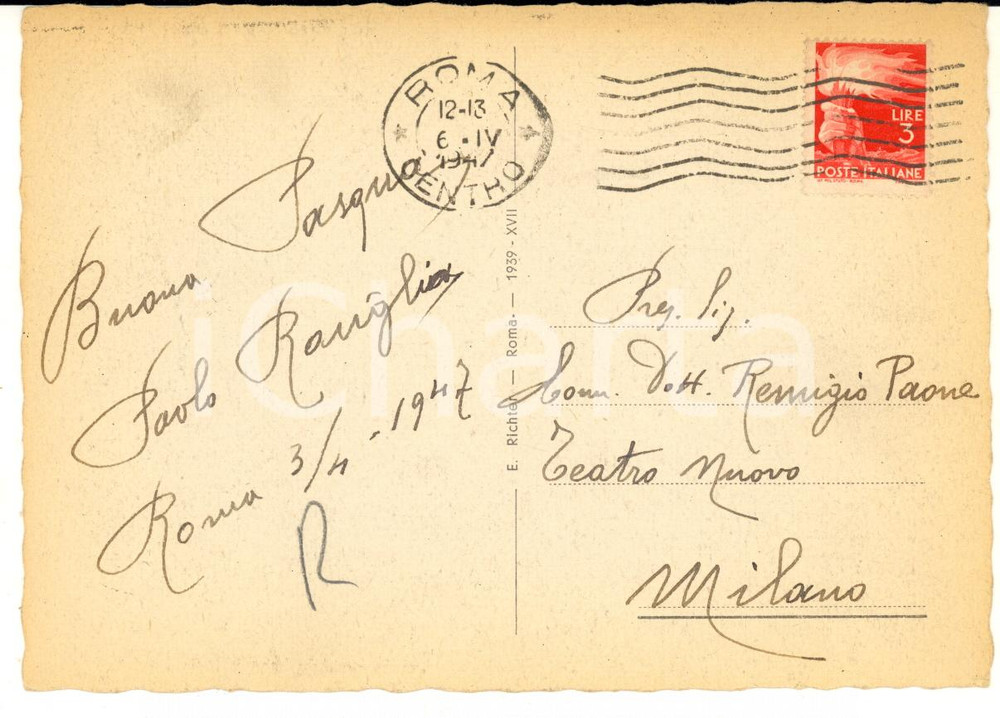 ROMA
12-13
6 - IV
1947
CENTRO
LIRE
3
POSTE ITALIANE
Buona Pasqua
Paolo
Roma 3/4. 1947
R
E. Richter — Roma — 1939 - XVII
Preg. Sig.
Comm. Dott. Remigio Paone
Teatro Nuovo
Milano
iCharta